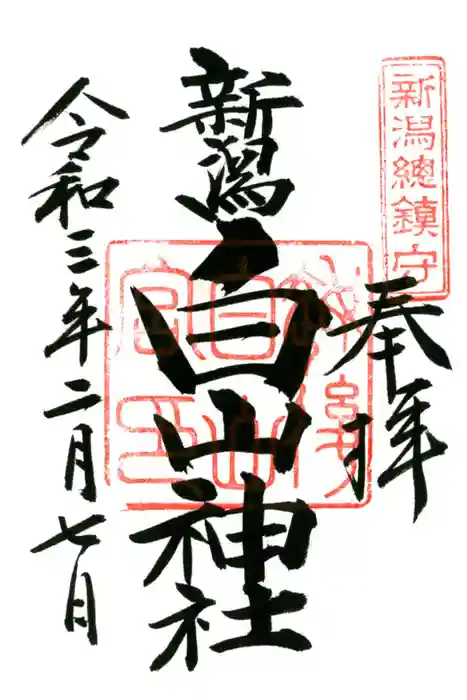 新潟總鎮守
奉拝
新潟白山神社
越後
白山
宮印
令和三年二月七日